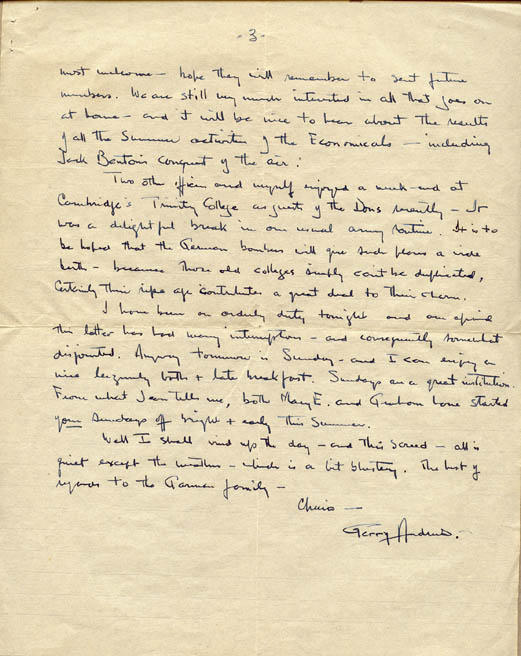 - 3 -
most welcome - hope they will remember to sent future
numbers. We are still very much interested in all that goes on
at home - and it will be nice to hear about the results
of all the Summer activities of the Economicals - including
Jack Benton's conquest of the air!
Two other officers and myself enjoyed a week-end at
Cambridge's Trinity College as guests of the Dons recently - It
was a delightful break in our usual army routine. It is to
be hoped that the German bombers will give such places a wide
berth - because those old colleges simply can't be duplicated,
Certainly their ripe age contributes a great deal to their charm.
I have been on orderly duty tonight and am afraid
this letter has had many interruptions - and consequently somewhat
disjointed. Anyway tomorrow is Sunday - and I can enjoy a
nice leisurely bath + late breakfast. Sundays are a great institution.
From what Jean tells me, both Mary E. and Graham have started
your Sundays off bright + early this Summer.
Well I shall wind up the day - and this screed - all is
quiet except the weather - which is a bit blustery. The best of
regards to the family -
Cheerio -
Gerry Andrews.